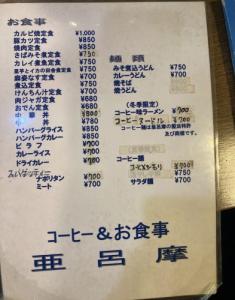 お食事
カルビ焼定食 ¥1,000
豚カツ定食 ¥850
焼肉定食 ¥850
さばみそ煮定食 ¥750
カレイ煮魚定食 ¥750
里芋とイカの田舎煮定食 ¥750
麻婆なす定食 ¥700
煮込定食 ¥750
けんちん汁定食 ¥700
肉ジャガ定食 ¥780
おでん定食 ¥700
中華丼 ¥800
丼 ¥780
ハンバーグライス ¥850
ハンバーグカレー ¥850
ピラフ ¥700
カレーライス ¥700
ドライカレー ¥700
スパゲッティー
ナポリタン ¥700
ミート ¥700
麺類
みそ煮込うどん ¥750
カレーうどん ¥700
焼そば
焼うどん ¥750
(冬季限定)
コーヒー味ラーメン ¥700
コーヒーヌードル ¥700
コーヒー麺は亜呂摩の製法特許
及び商標です。
コーヒー麺
¥700
サラダ麺 ¥750
コーヒー&お食事
亜呂摩